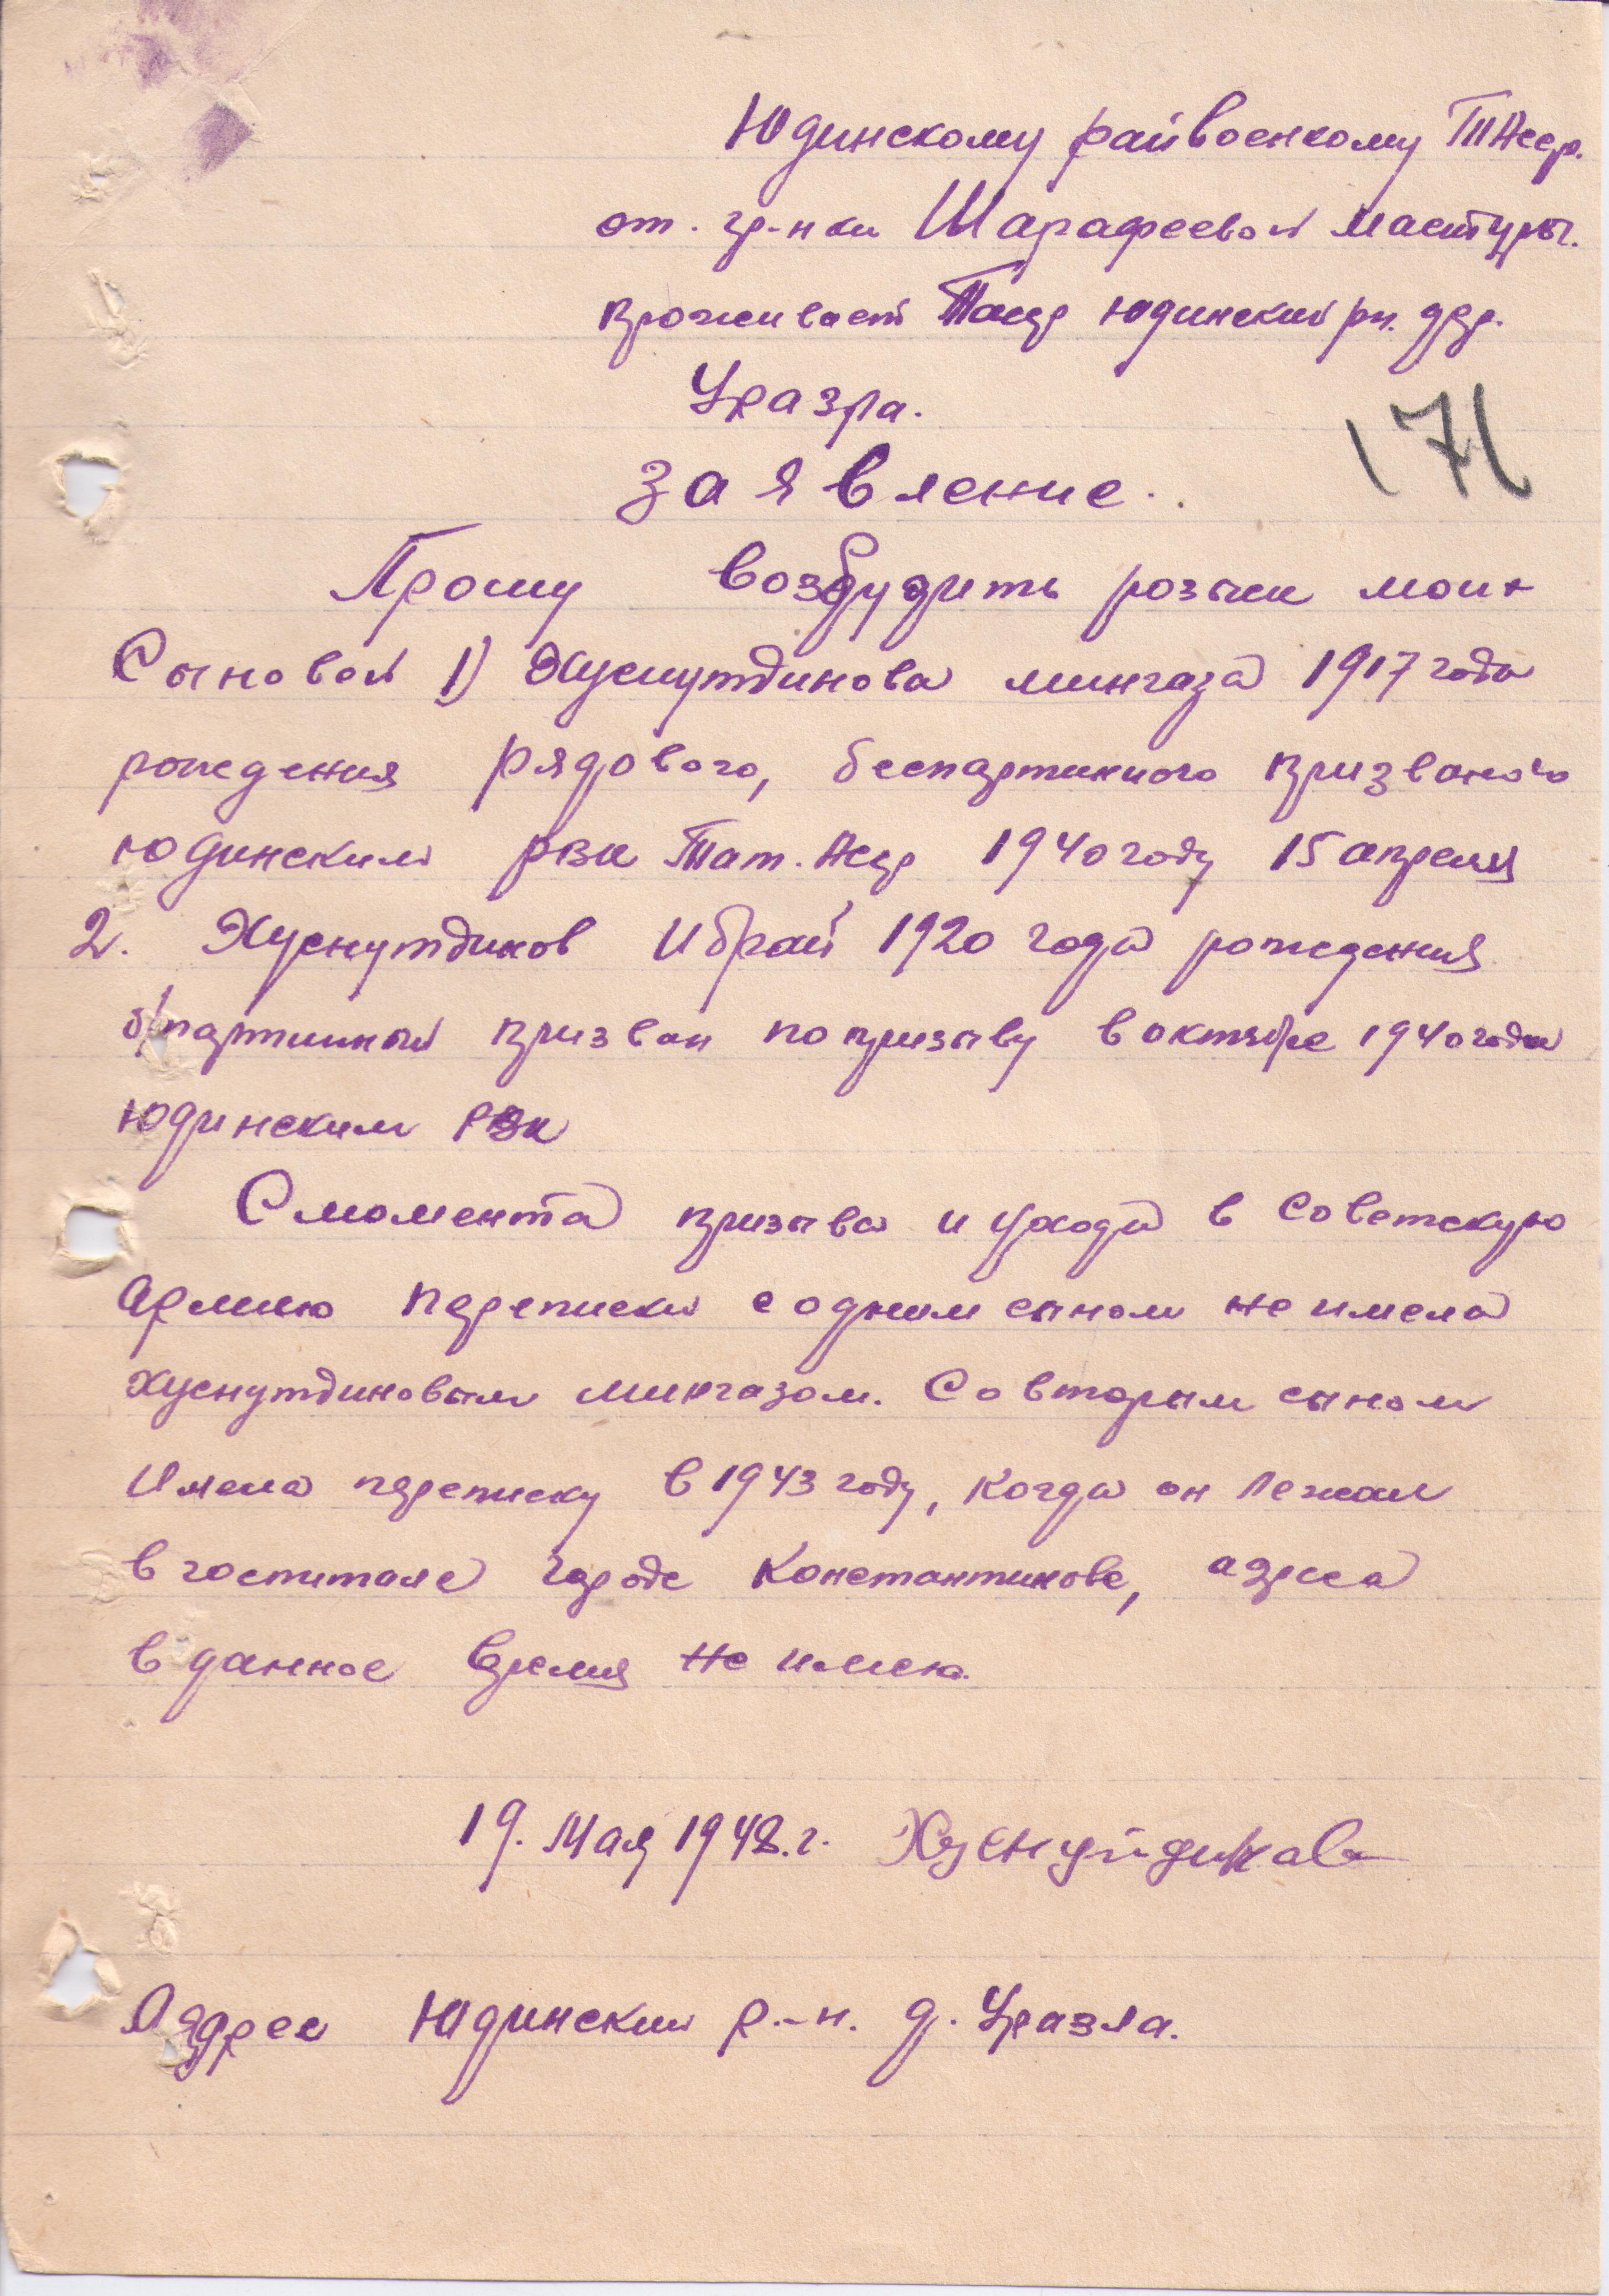 Юдинскому райвоенкому ТАсср.
от. гр-нки Шарафеевой Мастуры.
проживает Тасср Юдинский рн. дер.
Уразла.
171
Заявление.
Прошу возбудить розыск моих
Сыновей 1) Хуснутдинова мингаза 1917 года
рождения рядового, беспартийного призваного
юдинским рвк Тат. Асср 1940 году 15 апреля
2. Хуснутдинов Ибрай 1920 года рождения
б/партийный призван по призыву в октябре 1940 года
юдинским Рвк
С момента призыва и ухода в Советскую
Армию переписки с одним сыном не имела
Хуснутдиновым мингазом. Со вторым сыном
Имела переписку в 1943 году, когда он лежал
в госпитале городе Константинове, адреса
в данное время не имею.
19. Мая 1948.г. Хуснутдинова
Аддрес Юдинский р-н. д. Уразла.